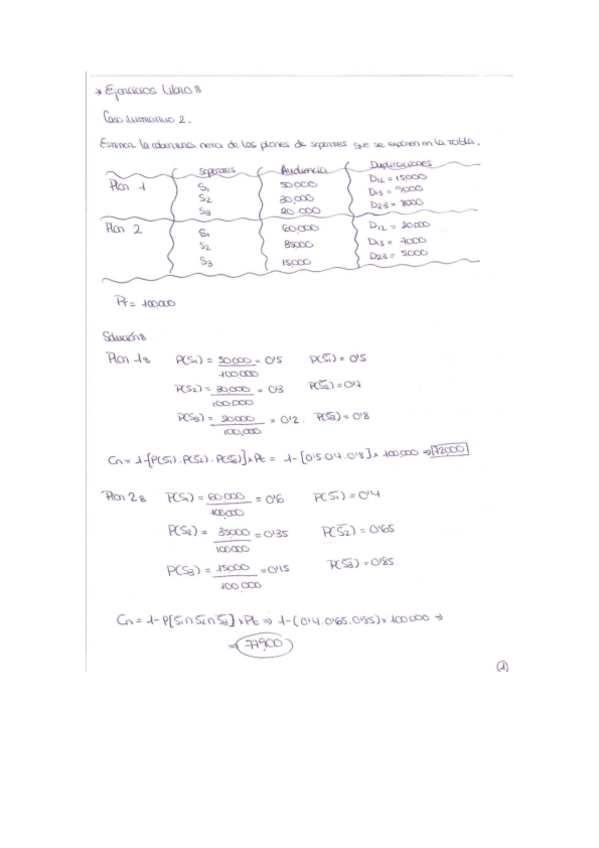 * Ejercicios Libro 8
Caso ilustrativo 2.
Estimar la cobertura neta de los planes de soportes que se exponen en la tabla.
Soportes Audiencia Duplicaciones
Plan 1 S1 50000 D12 = 15000
S2 30,000 D13 = 9000
S3 20.000 D23 = 8000
Plan 2 S1 60,000 D12 = 20.000
S2 35000 D13 = 7000
S3 15,000 D23 = 5000
Pt = 100,000
Solución:
Plan 1: P(S1) = 50.000/100.000 = 0'5 P(S̄1) = 0'5
P(S2) = 30,000/100.000 = 0'3 P(S̄2) = 0'7
P(S3) = 20000/100,000 = 0'2. P(S̄3) = 0'8
Cn = 1-[P(S̄1).P(S̄2).P(S̄3)]xPt = 1-[0'5.0'7.0'8]x 100.000 ⇒ 72,000
Plan 2: P(S1) = 60.000/100,000 = 0'6 P(S̄1) = 0'4
P(S2) = 35000/100000 = 0'35 P(S̄2) = 0'65
P(S3) = 15000/100.000 = 0'15 P(S̄3) = 0'85
Cn = 1-P[S̄1∩S̄2∩S̄3]xPt ⇒ 1-(0'4.0'65.0'85)x 100.000 ⇒
⇒ 77,900
(1)